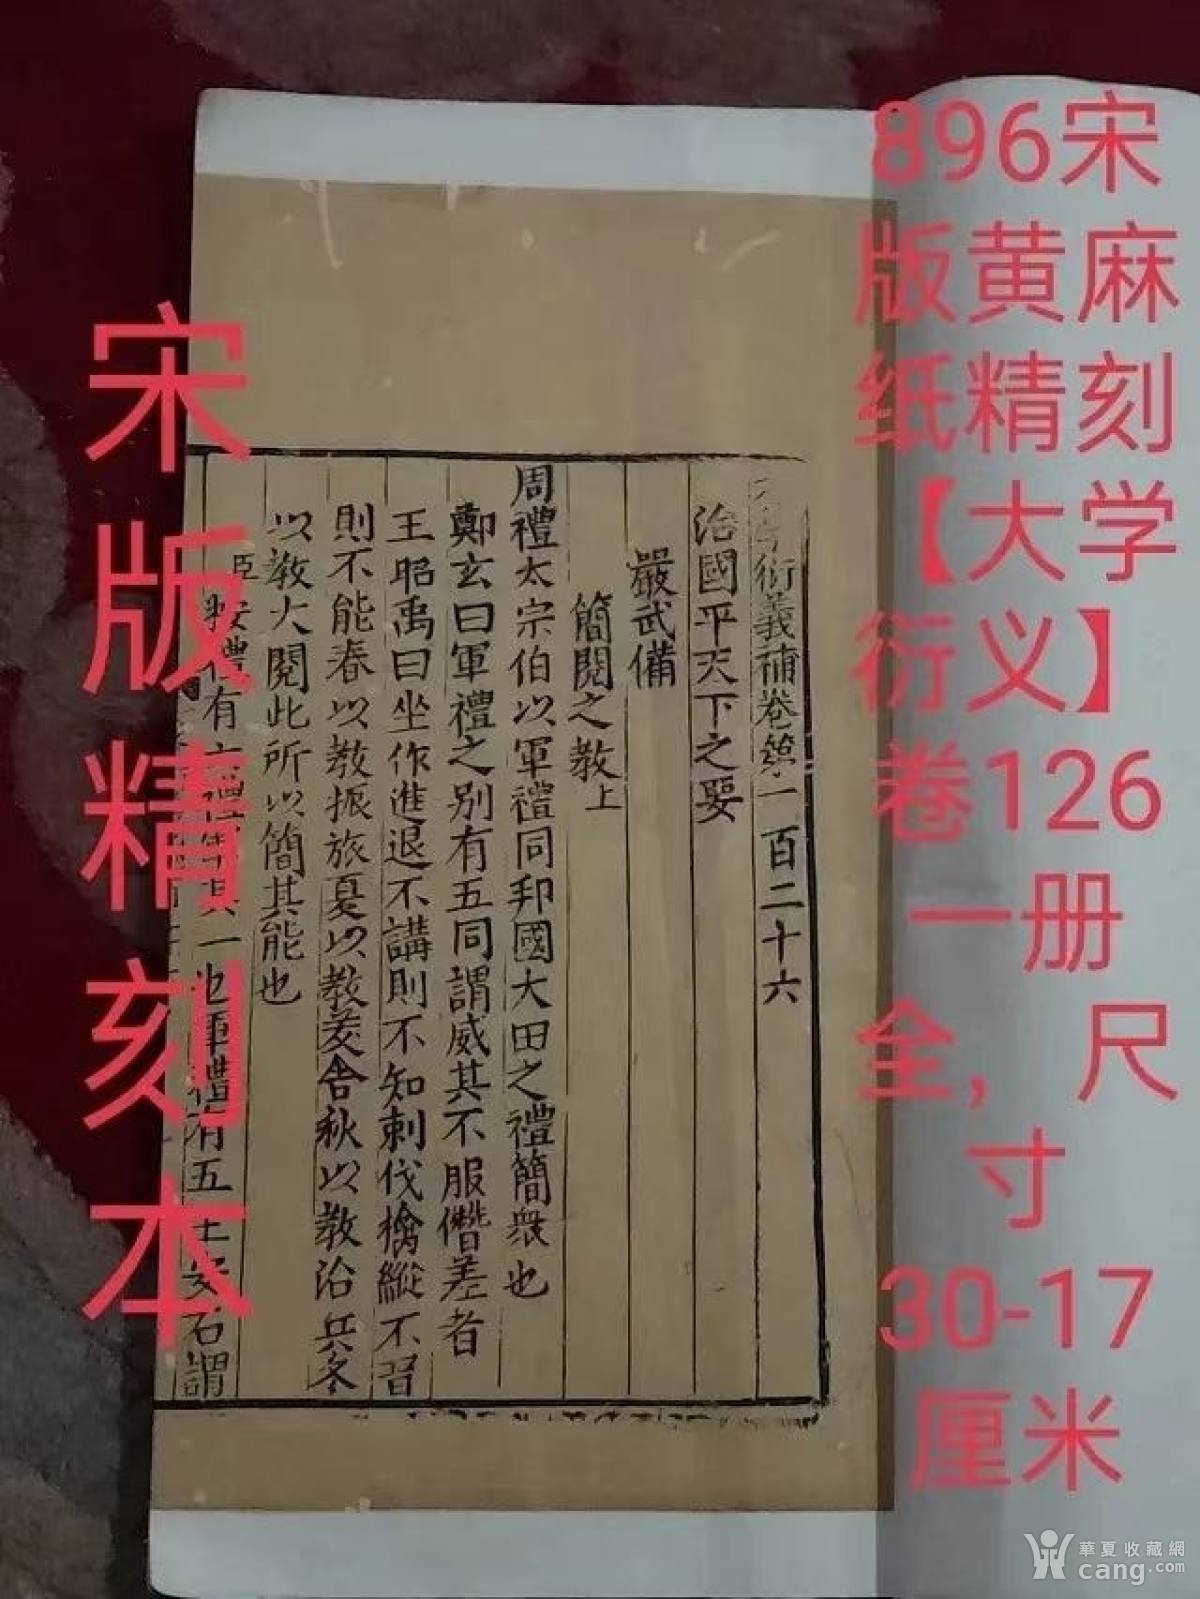 896宋
版黄麻
纸精刻
【大学
衍义】
卷126
一册
全，尺
寸
30-17
厘米
宋版精刻本
衍義補卷第一百二十六
治國平天下之要
嚴武備
簡閱之教上
周禮太宗伯以軍禮同邦國大田之禮簡衆也
鄭玄曰軍禮之別有五同謂威其不服僭差者
王昭禹曰坐作進退不講則不知刺伐擒縱不習
則不能春以教振旅夏以教茇舍秋以教治兵冬
以教大閱此所以簡其能也
臣按禮有 其一也軍禮有五王安石謂
華夏收藏網
cang.com